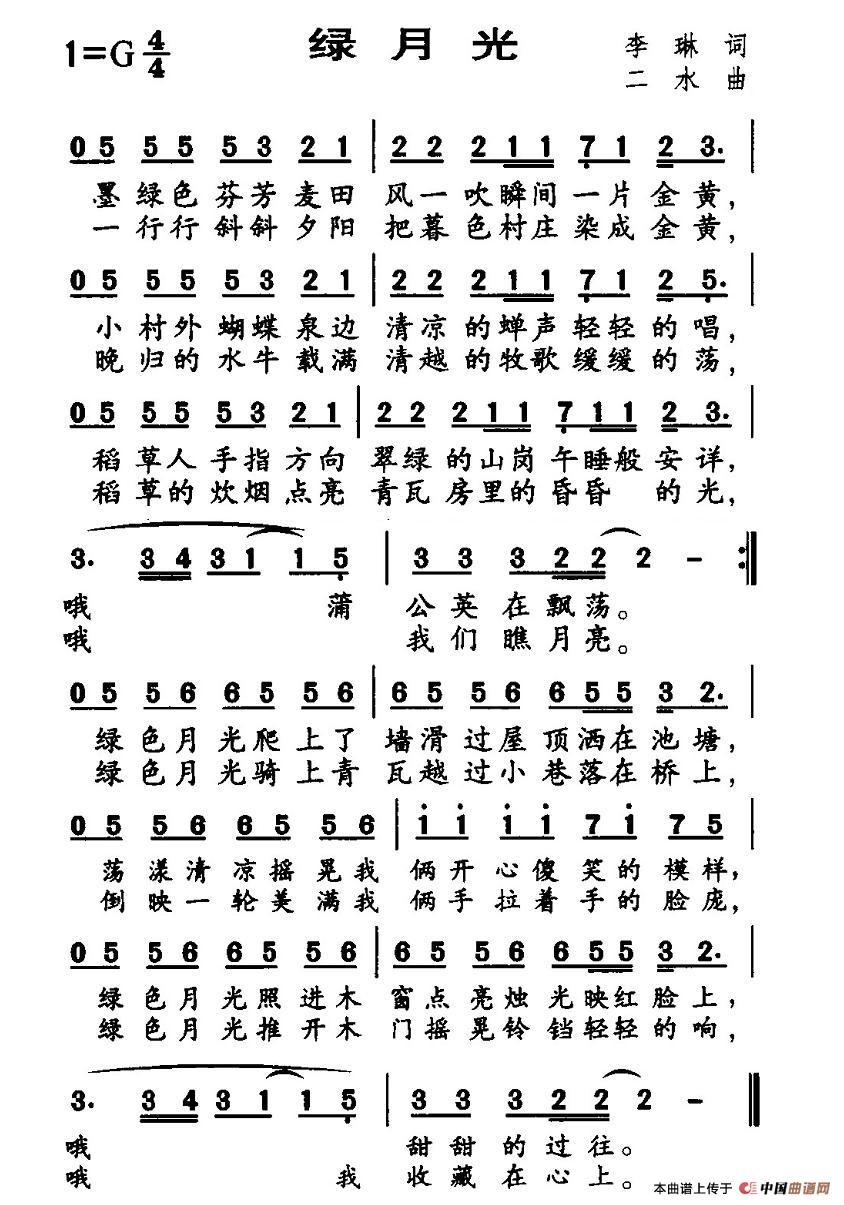 1=G 4/4 绿月光 李琳 词
二水 曲
0 5 5 5 5 3 2 1 | 2 2 2 1 1 7 1 2 3. |
墨绿色芬芳麦田 风一吹瞬间一片金黄，
一行行斜斜夕阳 把暮色村庄染成金黄，
0 5 5 5 5 3 2 1 | 2 2 2 1 1 7 1 2 5. |
小村外蝴蝶泉边 清凉的蝉声轻轻的唱，
晚归的水牛载满 清越的牧歌缓缓的荡，
0 5 5 5 5 3 2 1 | 2 2 2 1 1 7 1 1 2 3. |
稻草人手指方向 翠绿的山岗午睡般安详，
稻草的炊烟点亮 青瓦房里的昏昏 的光，
3. 3 4 3 1 1 5 | 3 3 3 2 2 2 - :‖
哦 蒲 公英在飘荡。
哦 我们瞧月亮。
0 5 5 6 6 5 5 6 | 6 5 5 6 6 5 5 3 2. |
绿色月光爬上了 墙滑过屋顶洒在池塘，
绿色月光骑上青 瓦越过小巷落在桥上，
0 5 5 6 6 5 5 6 | i i i i 7 i 7 5 |
荡漾清凉摇晃我 俩开心傻笑的模样，
倒映一轮美满我 俩手拉着手的脸庞，
0 5 5 6 6 5 5 6 | 6 5 5 6 6 5 5 3 2. |
绿色月光照进木 窗点亮烛光映红脸上，
绿色月光推开木 门摇晃铃铛轻轻的响，
3. 3 4 3 1 1 5 | 3 3 3 2 2 2 - ‖
哦 甜甜的过往。
哦 我 收藏在心上。
本曲谱上传于 中国曲谱网